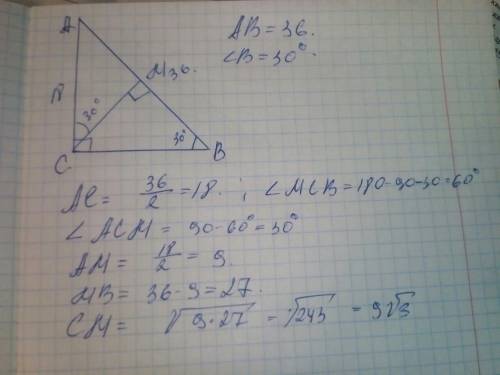 A
AB = 36.
∠B = 30°
M 36.
30°
30°
C
B
AC = 36/2 = 18. ; ∠MCB = 180-90-30 = 60°
∠ACM = 90-60° = 30°
AM = 18/2 = 9.
MB = 36-9 = 27.
CM = √9·27 = √243 = 9√3